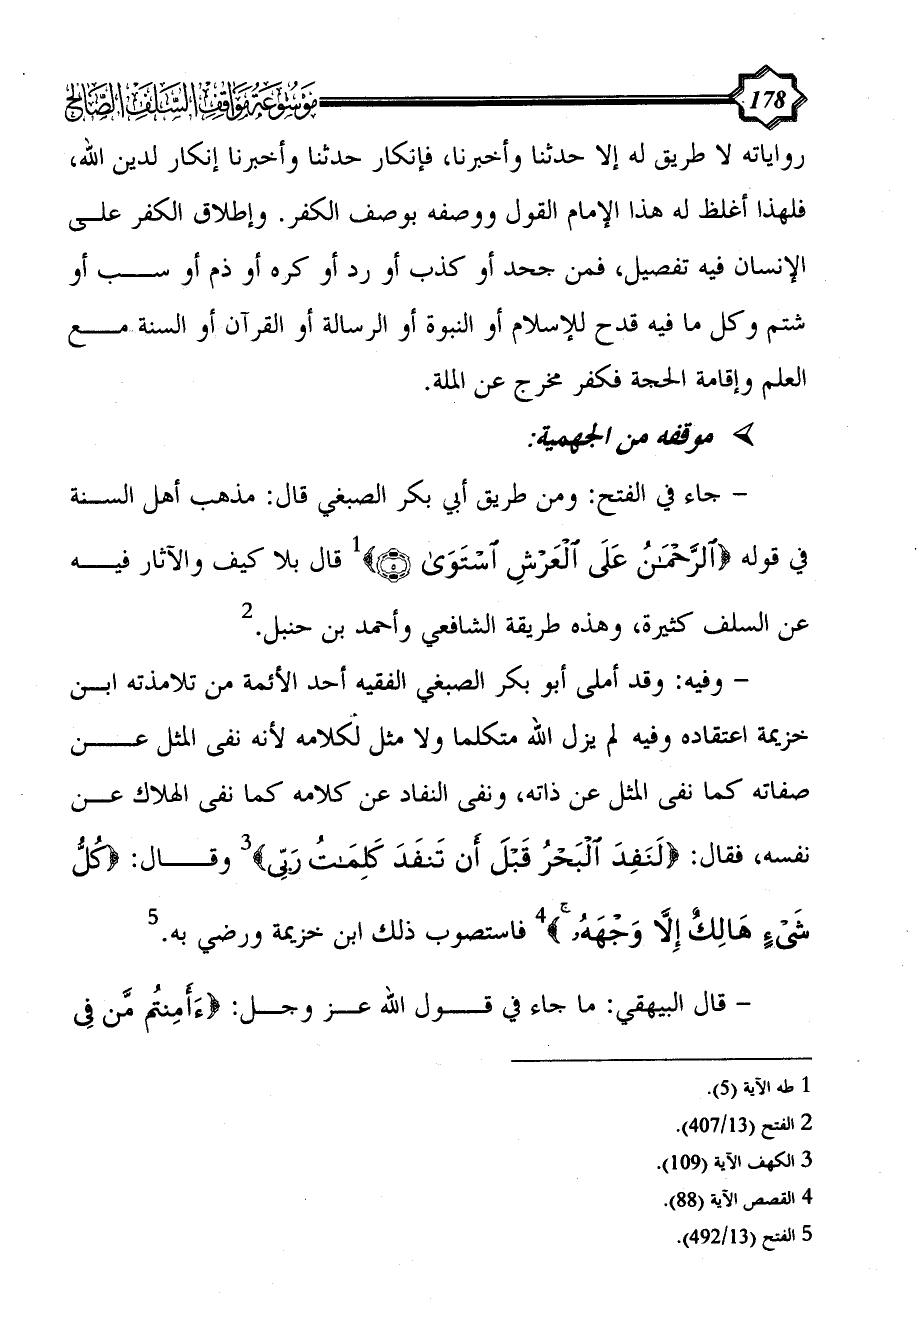 موسوعة مواقف السلف الصالح
178
رواياته لا طريق له إلا حدثنا وأخبرنا، فإنكار حدثنا وأخبرنا إنكار لدين الله،
فلهذا أغلظ له هذا الإمام القول ووصفه بوصف الكفر. وإطلاق الكفر على
الإنسان فيه تفصيل، فمن جحد أو كذب أو رد أو كره أو ذم أو سب أو
شتم وكل ما فيه قدح للإسلام أو النبوة أو الرسالة أو القرآن أو السنة مع
العلم وإقامة الحجة فكفر مخرج عن الملة.
موقفه من الجهمية:
- جاء في الفتح: ومن طريق أبي بكر الصبغي قال: مذهب أهل السنة
في قوله ﴿ٱلرَّحْمَـٰنُ عَلَى ٱلْعَرْشِ ٱسْتَوَىٰ ۝٥﴾1 قال بلا كيف والآثار فيه
عن السلف كثيرة، وهذه طريقة الشافعي وأحمد بن حنبل.2
- وفيه: وقد أملى أبو بكر الصبغي الفقيه أحد الأئمة من تلامذته ابن
خزيمة اعتقاده وفيه لم يزل الله متكلما ولا مثل لكلامه لأنه نفى المثل عن
صفاته كما نفى المثل عن ذاته، ونفى النفاد عن كلامه كما نفى الهلاك عن
نفسه، فقال: ﴿لَنَفِدَ ٱلْبَحْرُ قَبْلَ أَن تَنفَدَ كَلِمَـٰتُ رَبِّى﴾3 وقال: ﴿كُلُّ
شَىْءٍ هَالِكٌ إِلَّا وَجْهَهُۥ ۚ﴾4 فاستصوب ذلك ابن خزيمة ورضي به.5
- قال البيهقي: ما جاء في قول الله عز وجل: ﴿ءَأَمِنتُم مَّن فِى
1 طه الآية (5).
2 الفتح (407/13).
3 الكهف الآية (109).
4 القصص الآية (88).
5 الفتح (492/13).